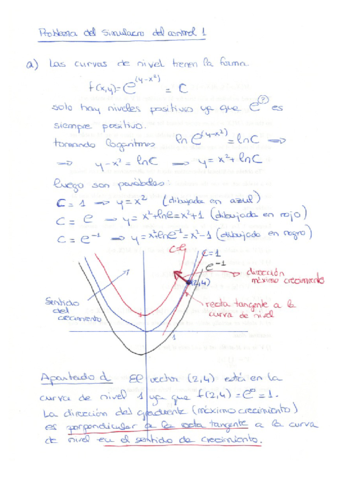 Problema del simulacro del control 1
a) Las curvas de nivel tienen la forma
f(x,y)= e^(y-x²) = C
solo hay niveles positivos ya que e^(?) es
siempre positivo.
tomando logaritmos ln e^(y-x²) = ln C ⟹
⟹ y-x² = ln C ⟹ y = x² + ln C
luego son parábolas:
C = 1 → y = x² (dibujada en azul)
C = e → y = x² + ln e = x² + 1 (dibujada en rojo)
C = e⁻¹ → y = x² + ln e⁻¹ = x² - 1 (dibujado en negro)
C=e
C=1
e⁻¹
dirección
máximo crecimiento
(2,4)
Sentido
del
crecimiento
recta tangente a la
curva de nivel
1
Apartado d El vector (2,4) está en la
curva de nivel 1 ya que f(2,4) = e⁰ = 1.
La dirección del gradiente (máximo crecimiento)
es perpendicular a la recta tangente a la curva
de nivel en el sentido de crecimiento.